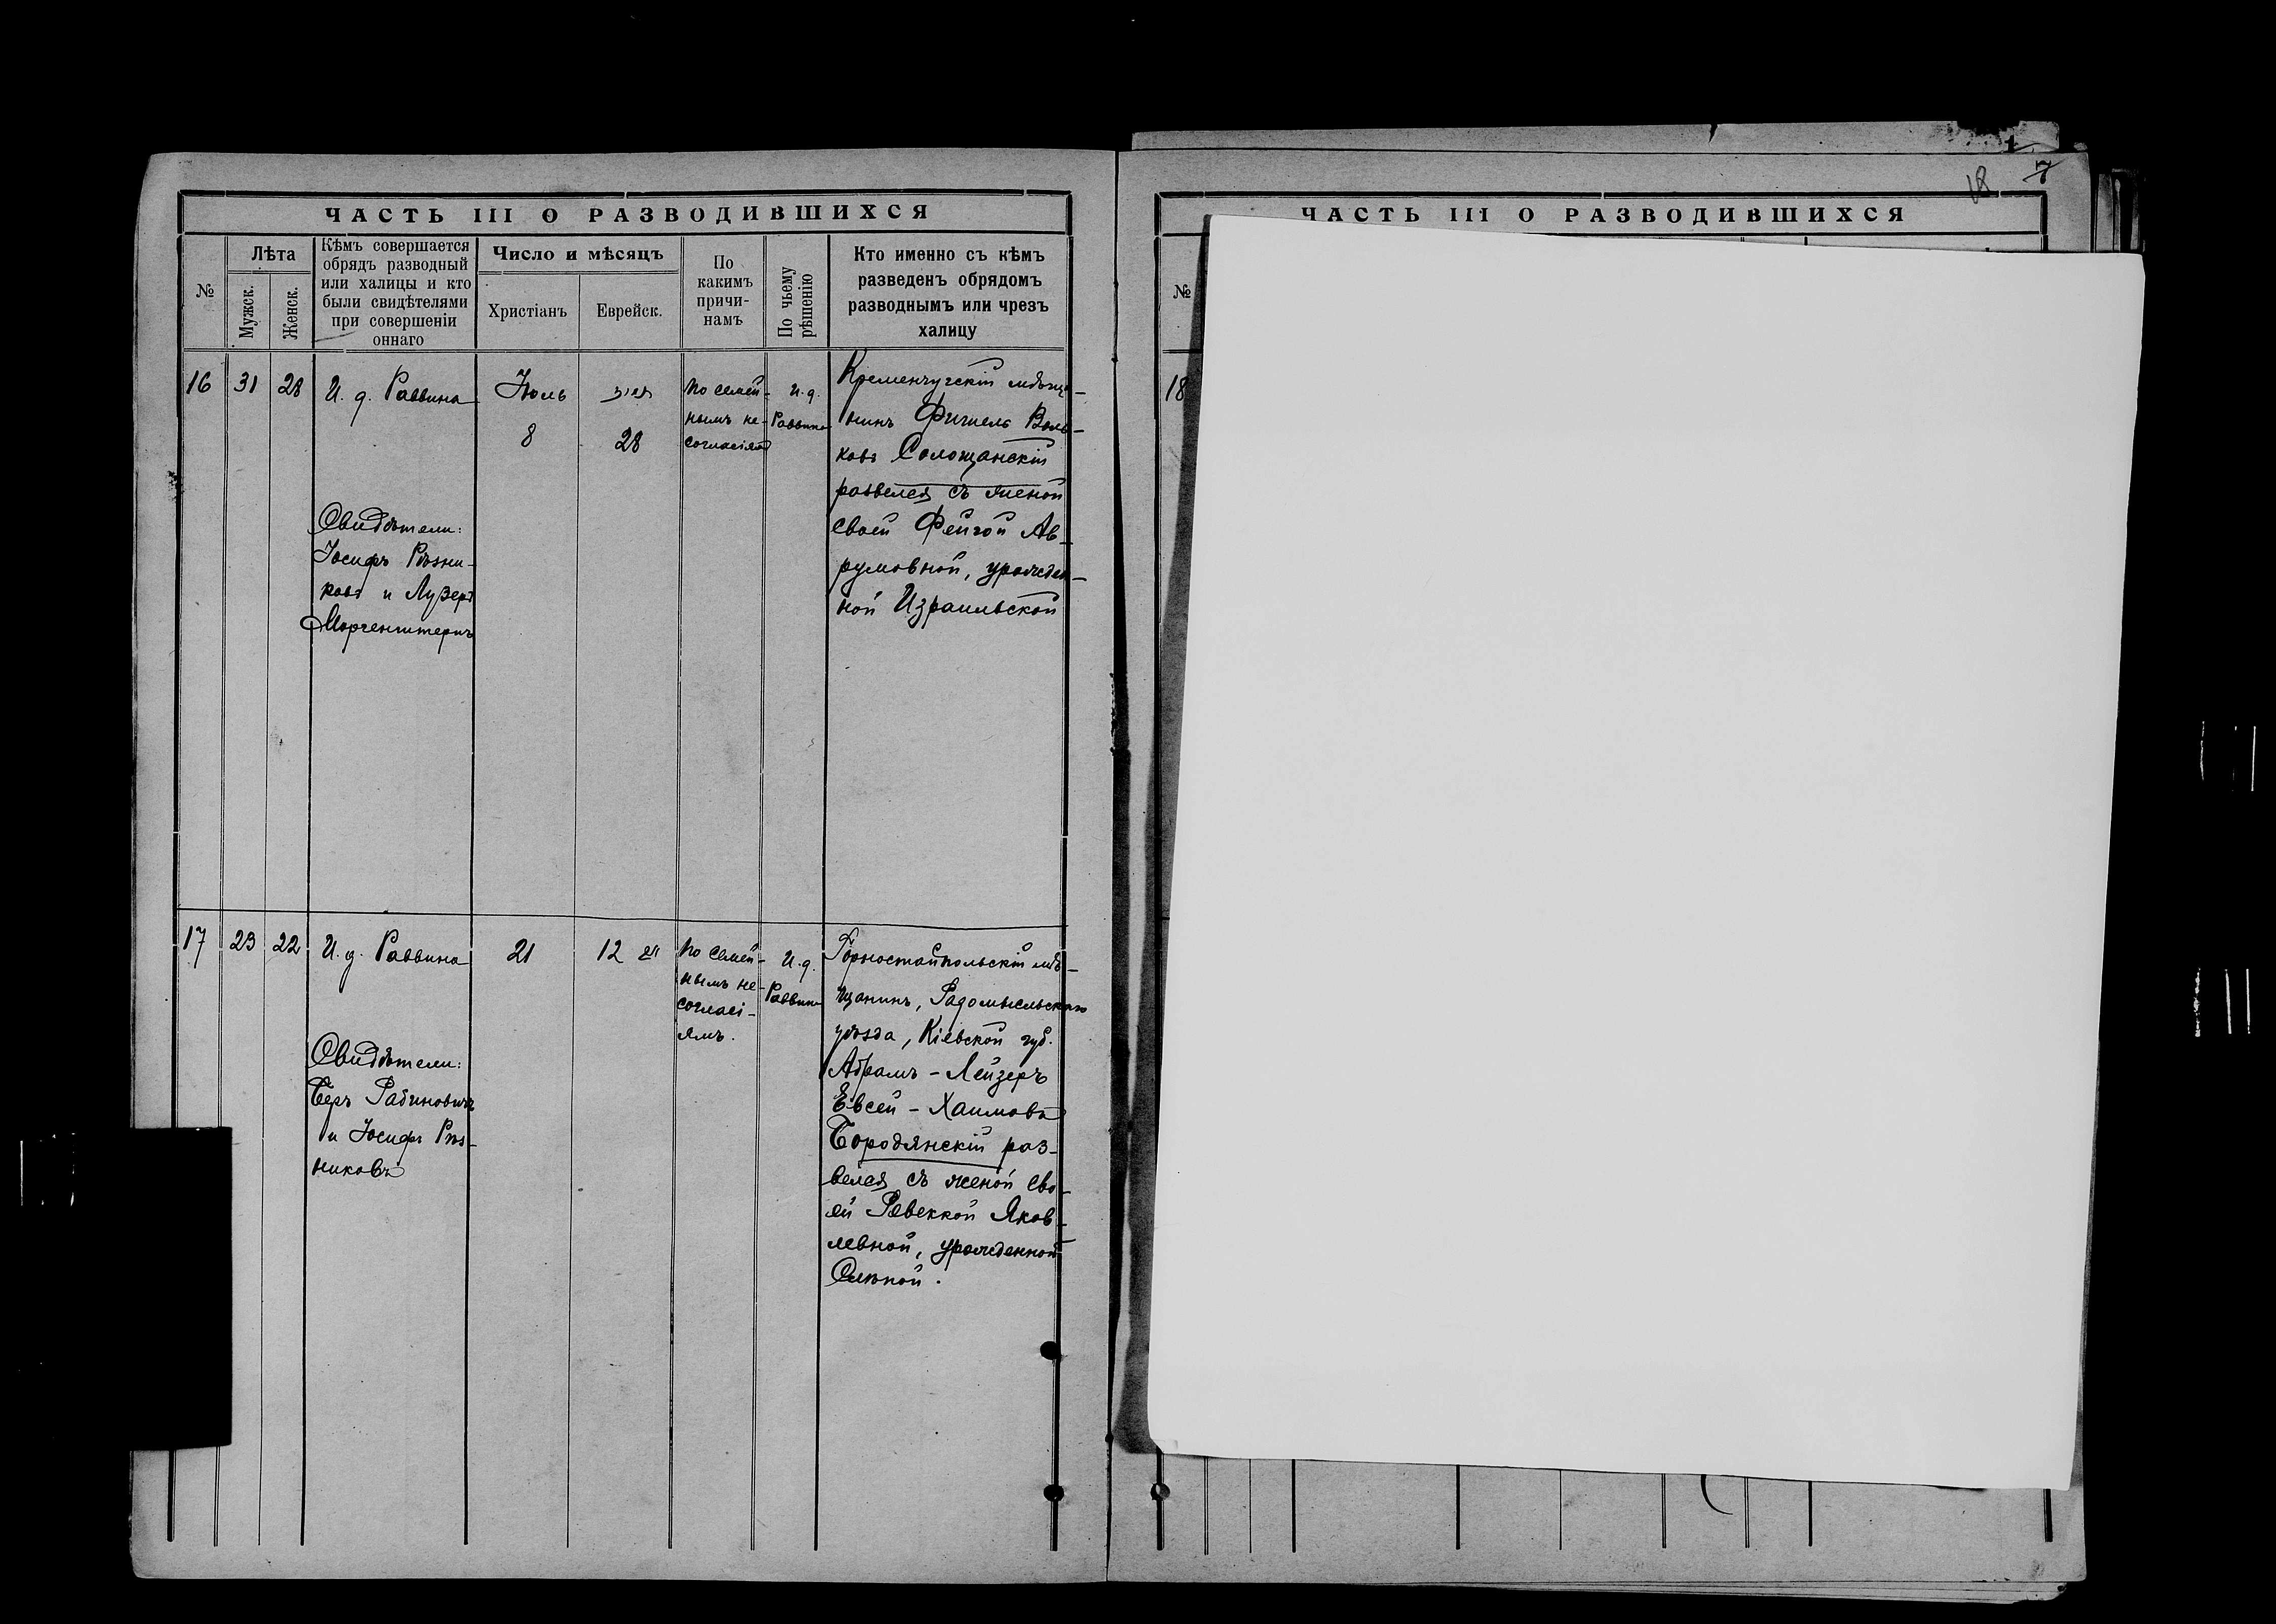 ЧАСТЬ III О РАЗВОДИВШИХСЯ
№
Лѣта
Мужск.
Женск.
Кѣмъ совершается
обрядъ разводный
или халицы и кто
были свидѣтелями
при совершеніи
оннаго
Число и мѣсяцъ
Христіанъ
Еврейск.
По
какимъ
причи-
намъ
По чьему
рѣшенію
Кто именно съ кѣмъ
разведенъ обрядомъ
разводнымъ или чрезъ
халицу
16
31
28
И. д. Раввина
Свидѣтели:
Іосифъ Рѣзни-
ковъ и Лузеръ
Моргенштернъ
Іюль
8
28
По семей-
нымъ не-
согласіямъ
И. д.
Раввина
Кременчугскій мѣща-
нинъ Фишель Воль-
ковъ Солощанскій
развелся съ женой
своей Фейгой Ав-
румовной, урожден-
ной Израильской
17
23
22
И. д. Раввина
Свидѣтели:
Беръ Рабиновичъ
и Іосифъ Рѣз-
никовъ
21
12
По семей-
нымъ не-
согласі-
ямъ.
И. д.
Раввина
Горностайпольскій мѣ-
щанинъ, Радомысльскаго
уѣзда, Кіевской губ.
Абрамъ-Лейзеръ
Евсей-Хаимовъ
Бородянскій раз-
велся съ женой сво-
ей Ревеккой Яков-
левной, урожденной
ЧАСТЬ III О РАЗВОДИВШИХСЯ
18
7
№
18